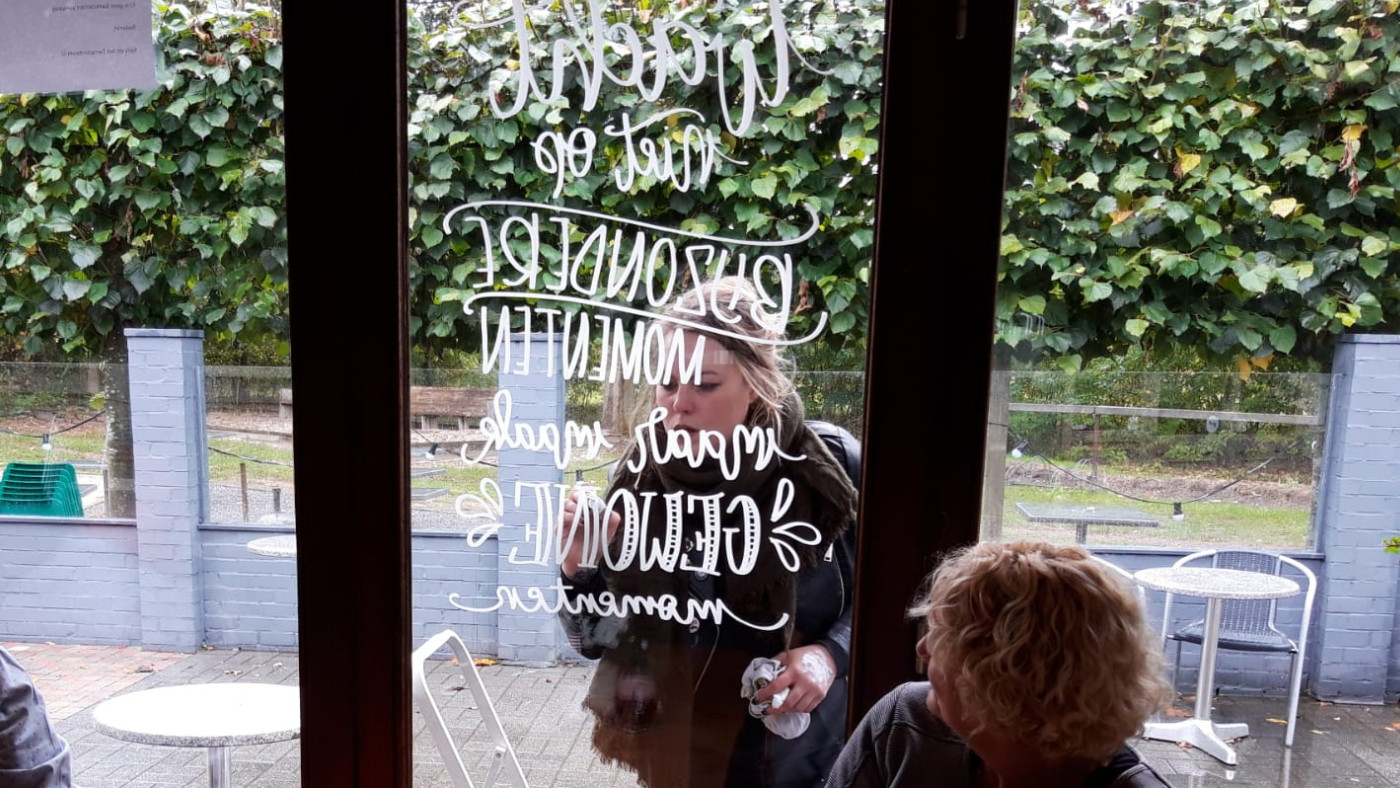 Wacht
niet op
BIJZONDERE
MOMENTEN
maar maak
GEWONE
momenten